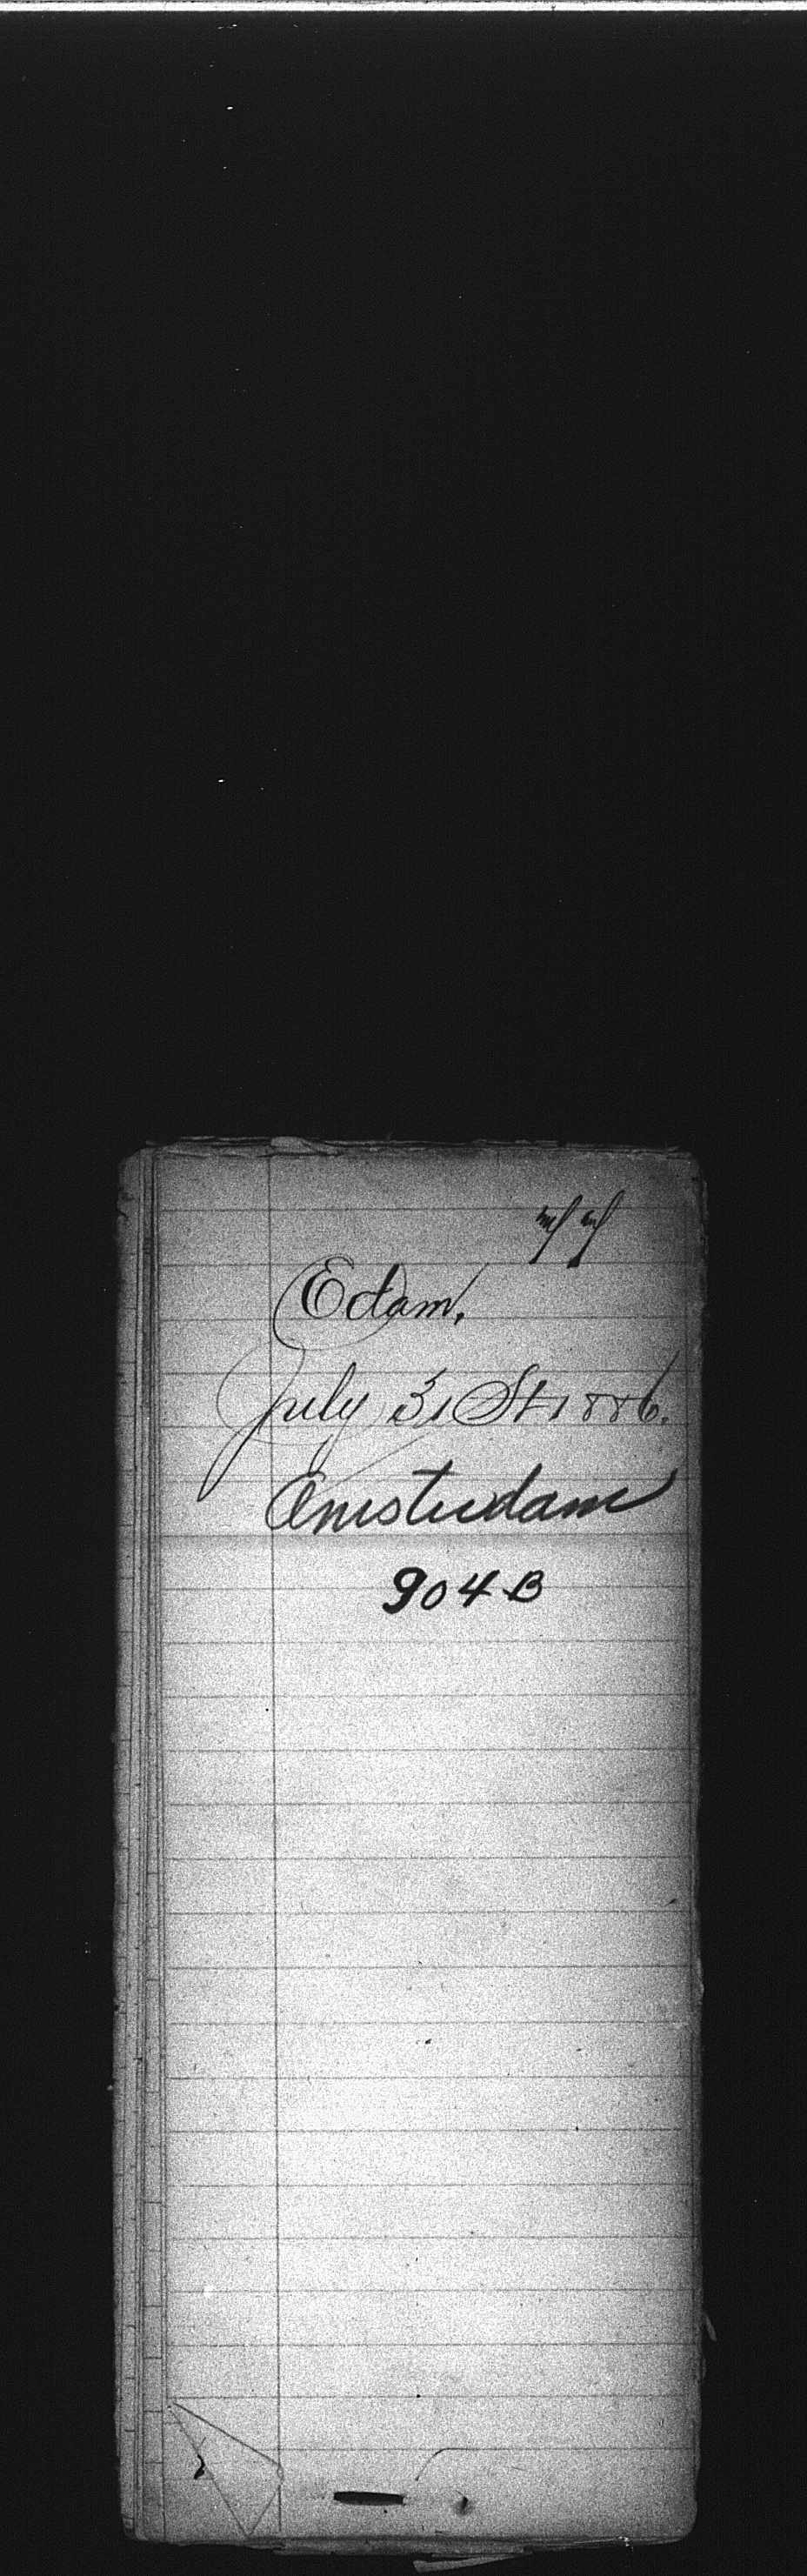 Edam,
July 31 St 1886.
Amsterdam
904B